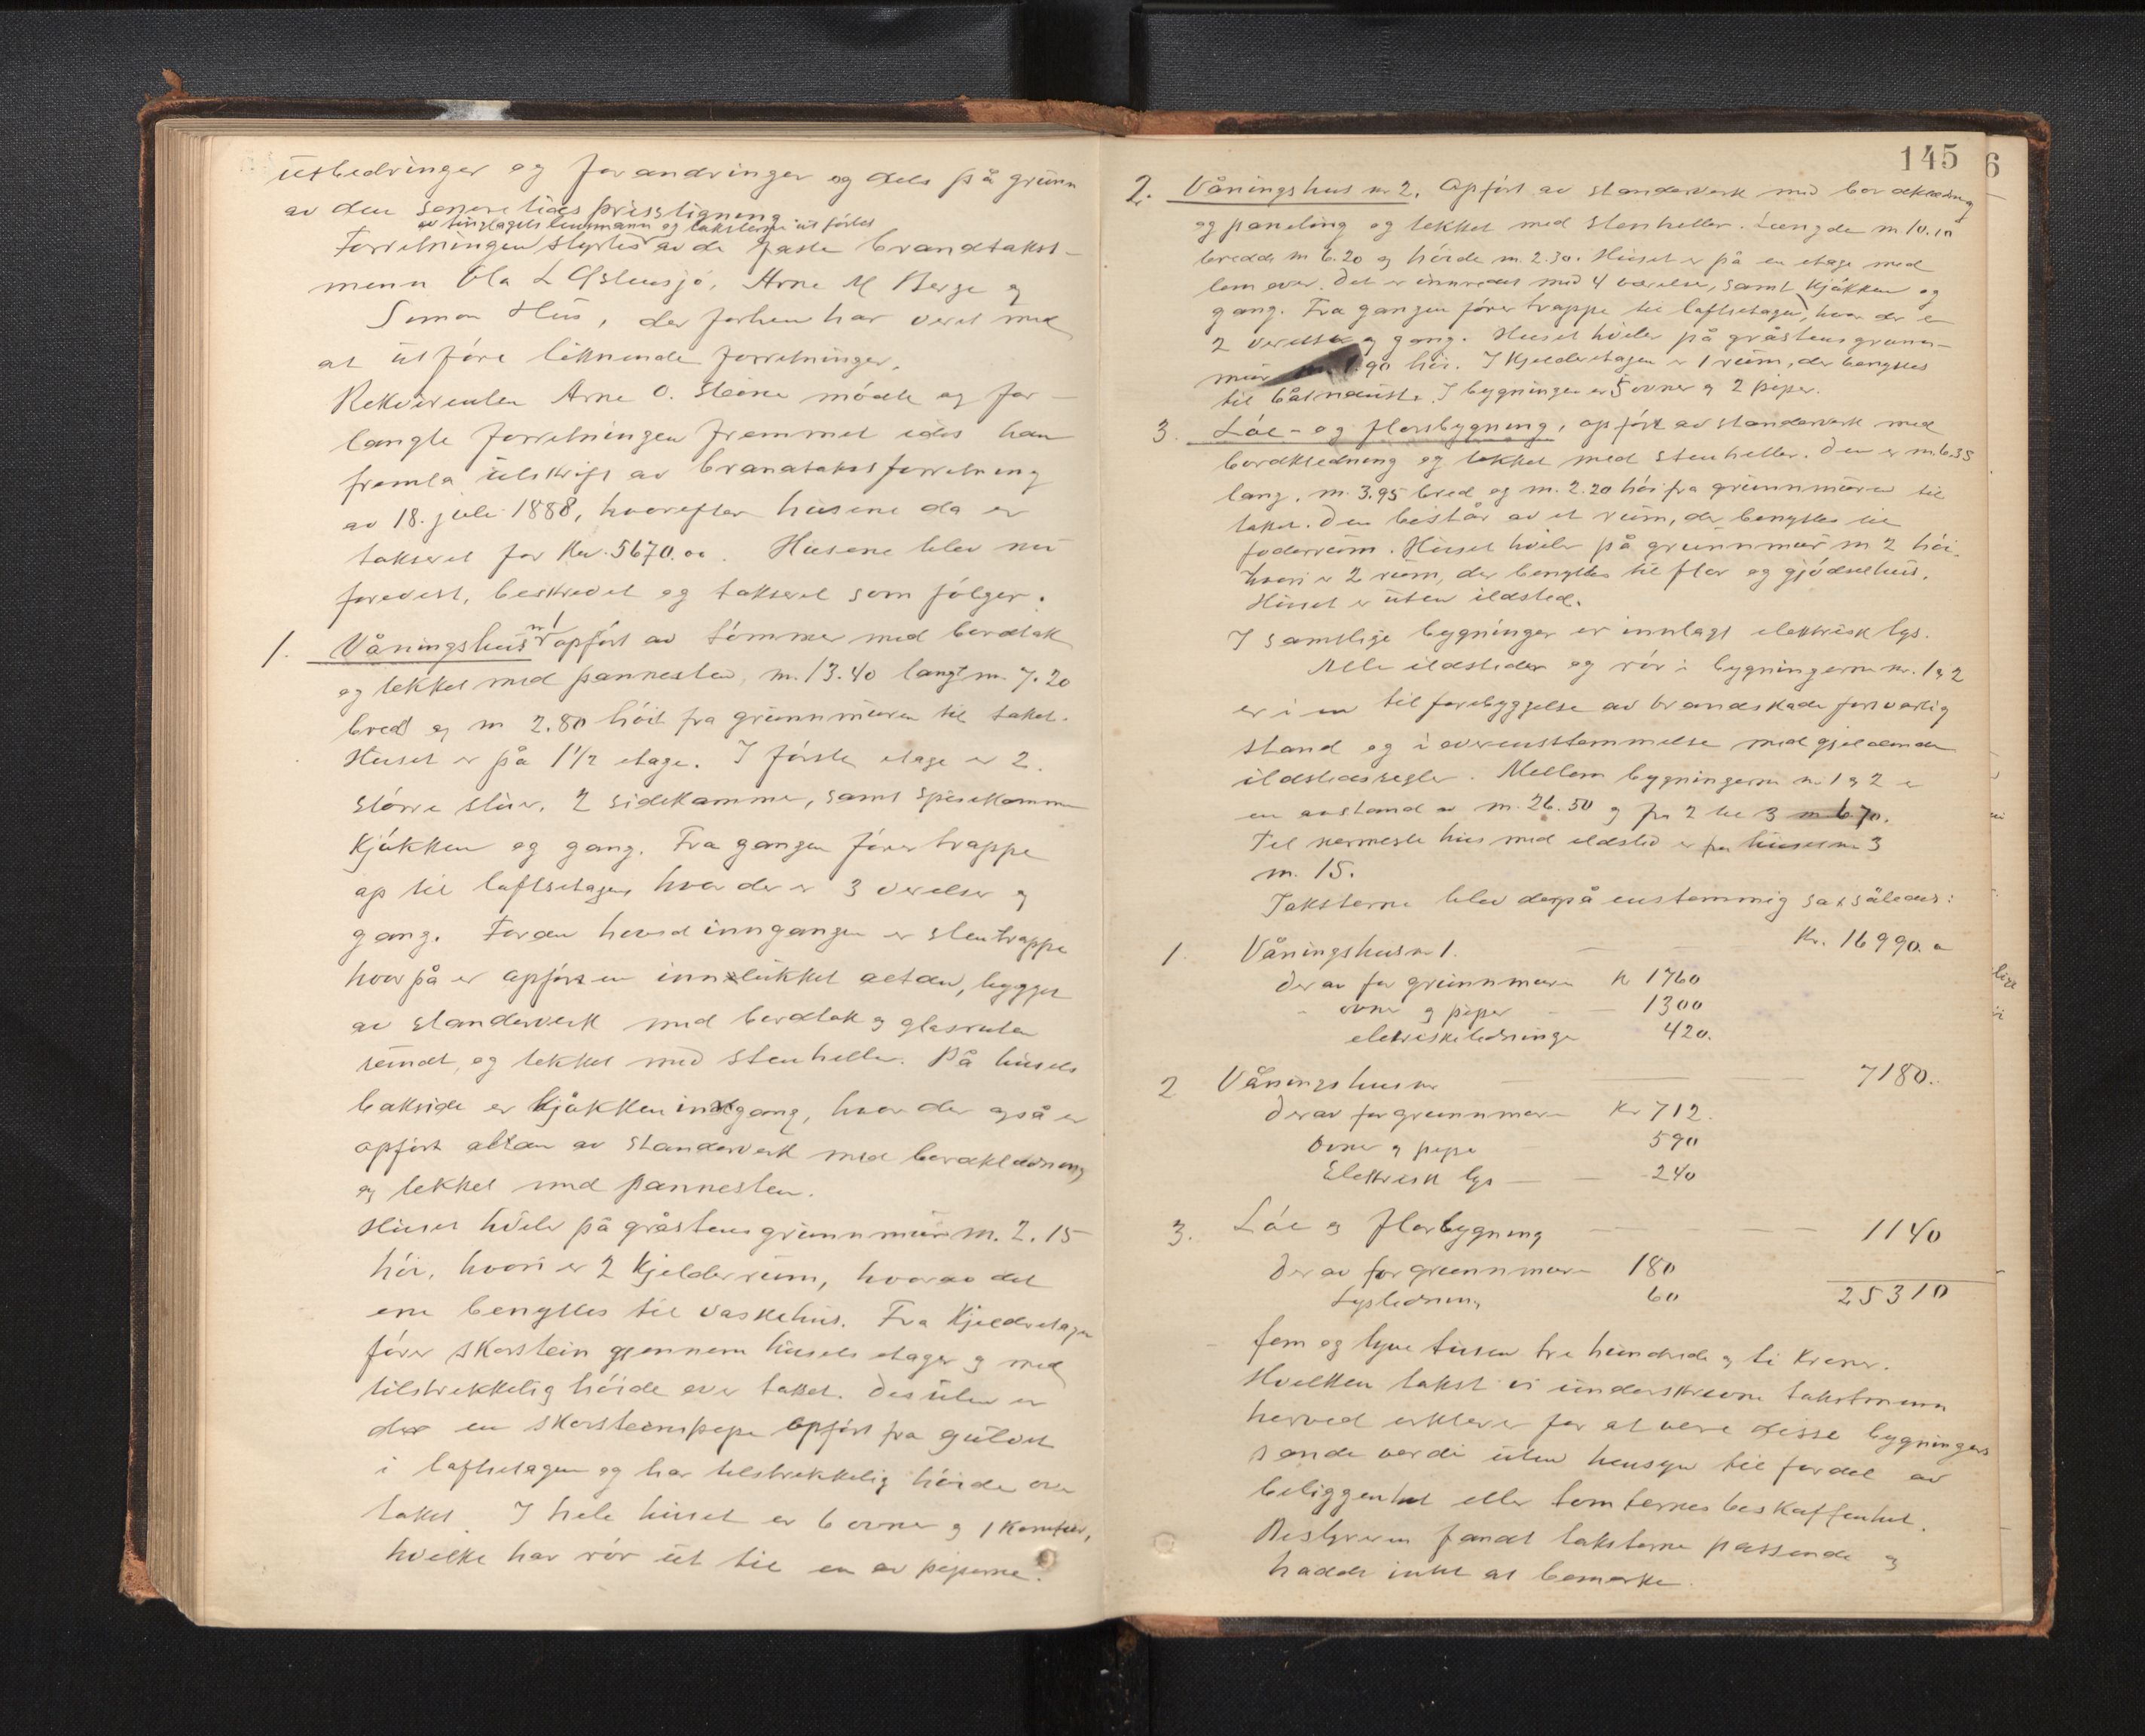 utbedringer og forandringer og dels på grunn
av den senere tids prisstigning
av tinglagets lensmann og taksterne utförtes
Forretningen styrtes av de faste brandtakst-
menn Ola L Østensjö, Arne M Berge og
Simon Hus, der forhen har veret med
at utföre liknende forretninger.
Rekvirenten Arne O. Steine mödte og for-
langte forretningen fremmet idet han
fremla utskrift av brandtakstforretning
av 18. juli 1888, hvorefter husene da er
taksert for Kr. 5670.00. Husene blev nu
forevist, beskrevet og taksert som fölger:
1. Våningshus nr 1 opfört av tömmer med bordtak
og tekket med pannesten, m. 13.40 langt m. 7.20
bred og m 2.80 höit fra grunnmuren til taket.
Huset er på 1 1/2 etage. I förste etage er 2
större stuer, 2 sidekammer, samt spisekammer
Kjökken og gang. Fra gangen förer trappe
op til loftsetagen hvor der er 3 verelser og
gang. Foran hovedinngangen er stentrappe
hvorpå er opfört en innelukket altan, bygget
av standerverk med bordtak og glasruter
rundt, og tekket med stenheller. På husets
bakside er Kjökkeninngang, hvor der også er
opfört altan av standerverk med bordkledning
og tekket med pannesten.
Huset hviler på gråstensgrunnmur m. 2.15
höi, hvori er 2 Kjelderrum, hvorav det
ene benyttes til vaskehus. Fra Kjelderetagen
förer skorstein gjennem husets etager og med
tilstrekkelig höide over taket. Desuten er
der en skorsteinspipe opfört fra gulvet
i loftsetagen og har tilstrekkelig höide over
taket. I hele huset er 6 ovner og 1 Komfur,
hvilke har rör ut til en av piperne.
145
6
2. Våningshus nr 2. Opfört av standerverk med bordkledning
og paneling og tekket med stenheller. Længde m. 10.10
bredde m 6.20 og höide m. 2.30. Huset er på en etage med
lem over. Det er innredet med 4 verelser, samt Kjökken og
gang. Fra gangen förer trappe til loftsetagen, hvor der er
2 verelser og gang. Huset hviler på gråstensgrunn-
mur 1.90 höi. I Kjelderetagen er 1 rum, der benyttes
til båtnaust. I bygningen er 5 ovner og 2 piper.
3. Löe- og florsbygning, opfört av standerverk med
bordkledning og tekket med stenheller. Den er m. 6.35
lang. m. 3.95 bred og m. 2.20 höi fra grunnmuren til
taket. Den består av et rum, der benyttes til
foderrum. Huset hviler på grunnmur m 2 höi,
hvori er 2 rum, der benyttes til flor og gjödselhus.
Huset er uten ildsted.
I samtlige bygninger er innlagt elektrisk lys.
Alle ildsteder og rör i bygningerne nr. 1 og 2
er i en til forebyggelse av brandskade forsvarlig
stand og i overensstemmelse med gjeldende
ildstedsregler. Mellem bygningerne nr. 1 og 2 er
en avstand av m. 26.50 og fra 2 til 3 m 6.70.
Til nermeste hus med ildsted er fra huset nr 3
m. 15.
Taksterne blev derpå enstemmig sat således:
1. Våningshus nr 1. Kr. 16990.00
Derav for grunnmuren Kr 1760
- ovner og piper 1300
elektriske ledninger 420.
2 Våningshus nr 7180.
Derav for grunnmuren Kr 712.
Ovner og piper 590
Elektrisk lys 240
3. Löe og florbygning 1140
Derav for grunnmuren 180
Lysledning 60 25310
fem og tyve tusen tre hundrede og ti Kroner.
Hvilken takst vi underskrevne takstmenn
herved erklerer for at vere disse bygningers
sande verdi uten hensyn til fordel av
beliggenhet eller tomternes beskaffenhet.
Bestyreren fandt taksterne passende og
hadde intet at bemerke.